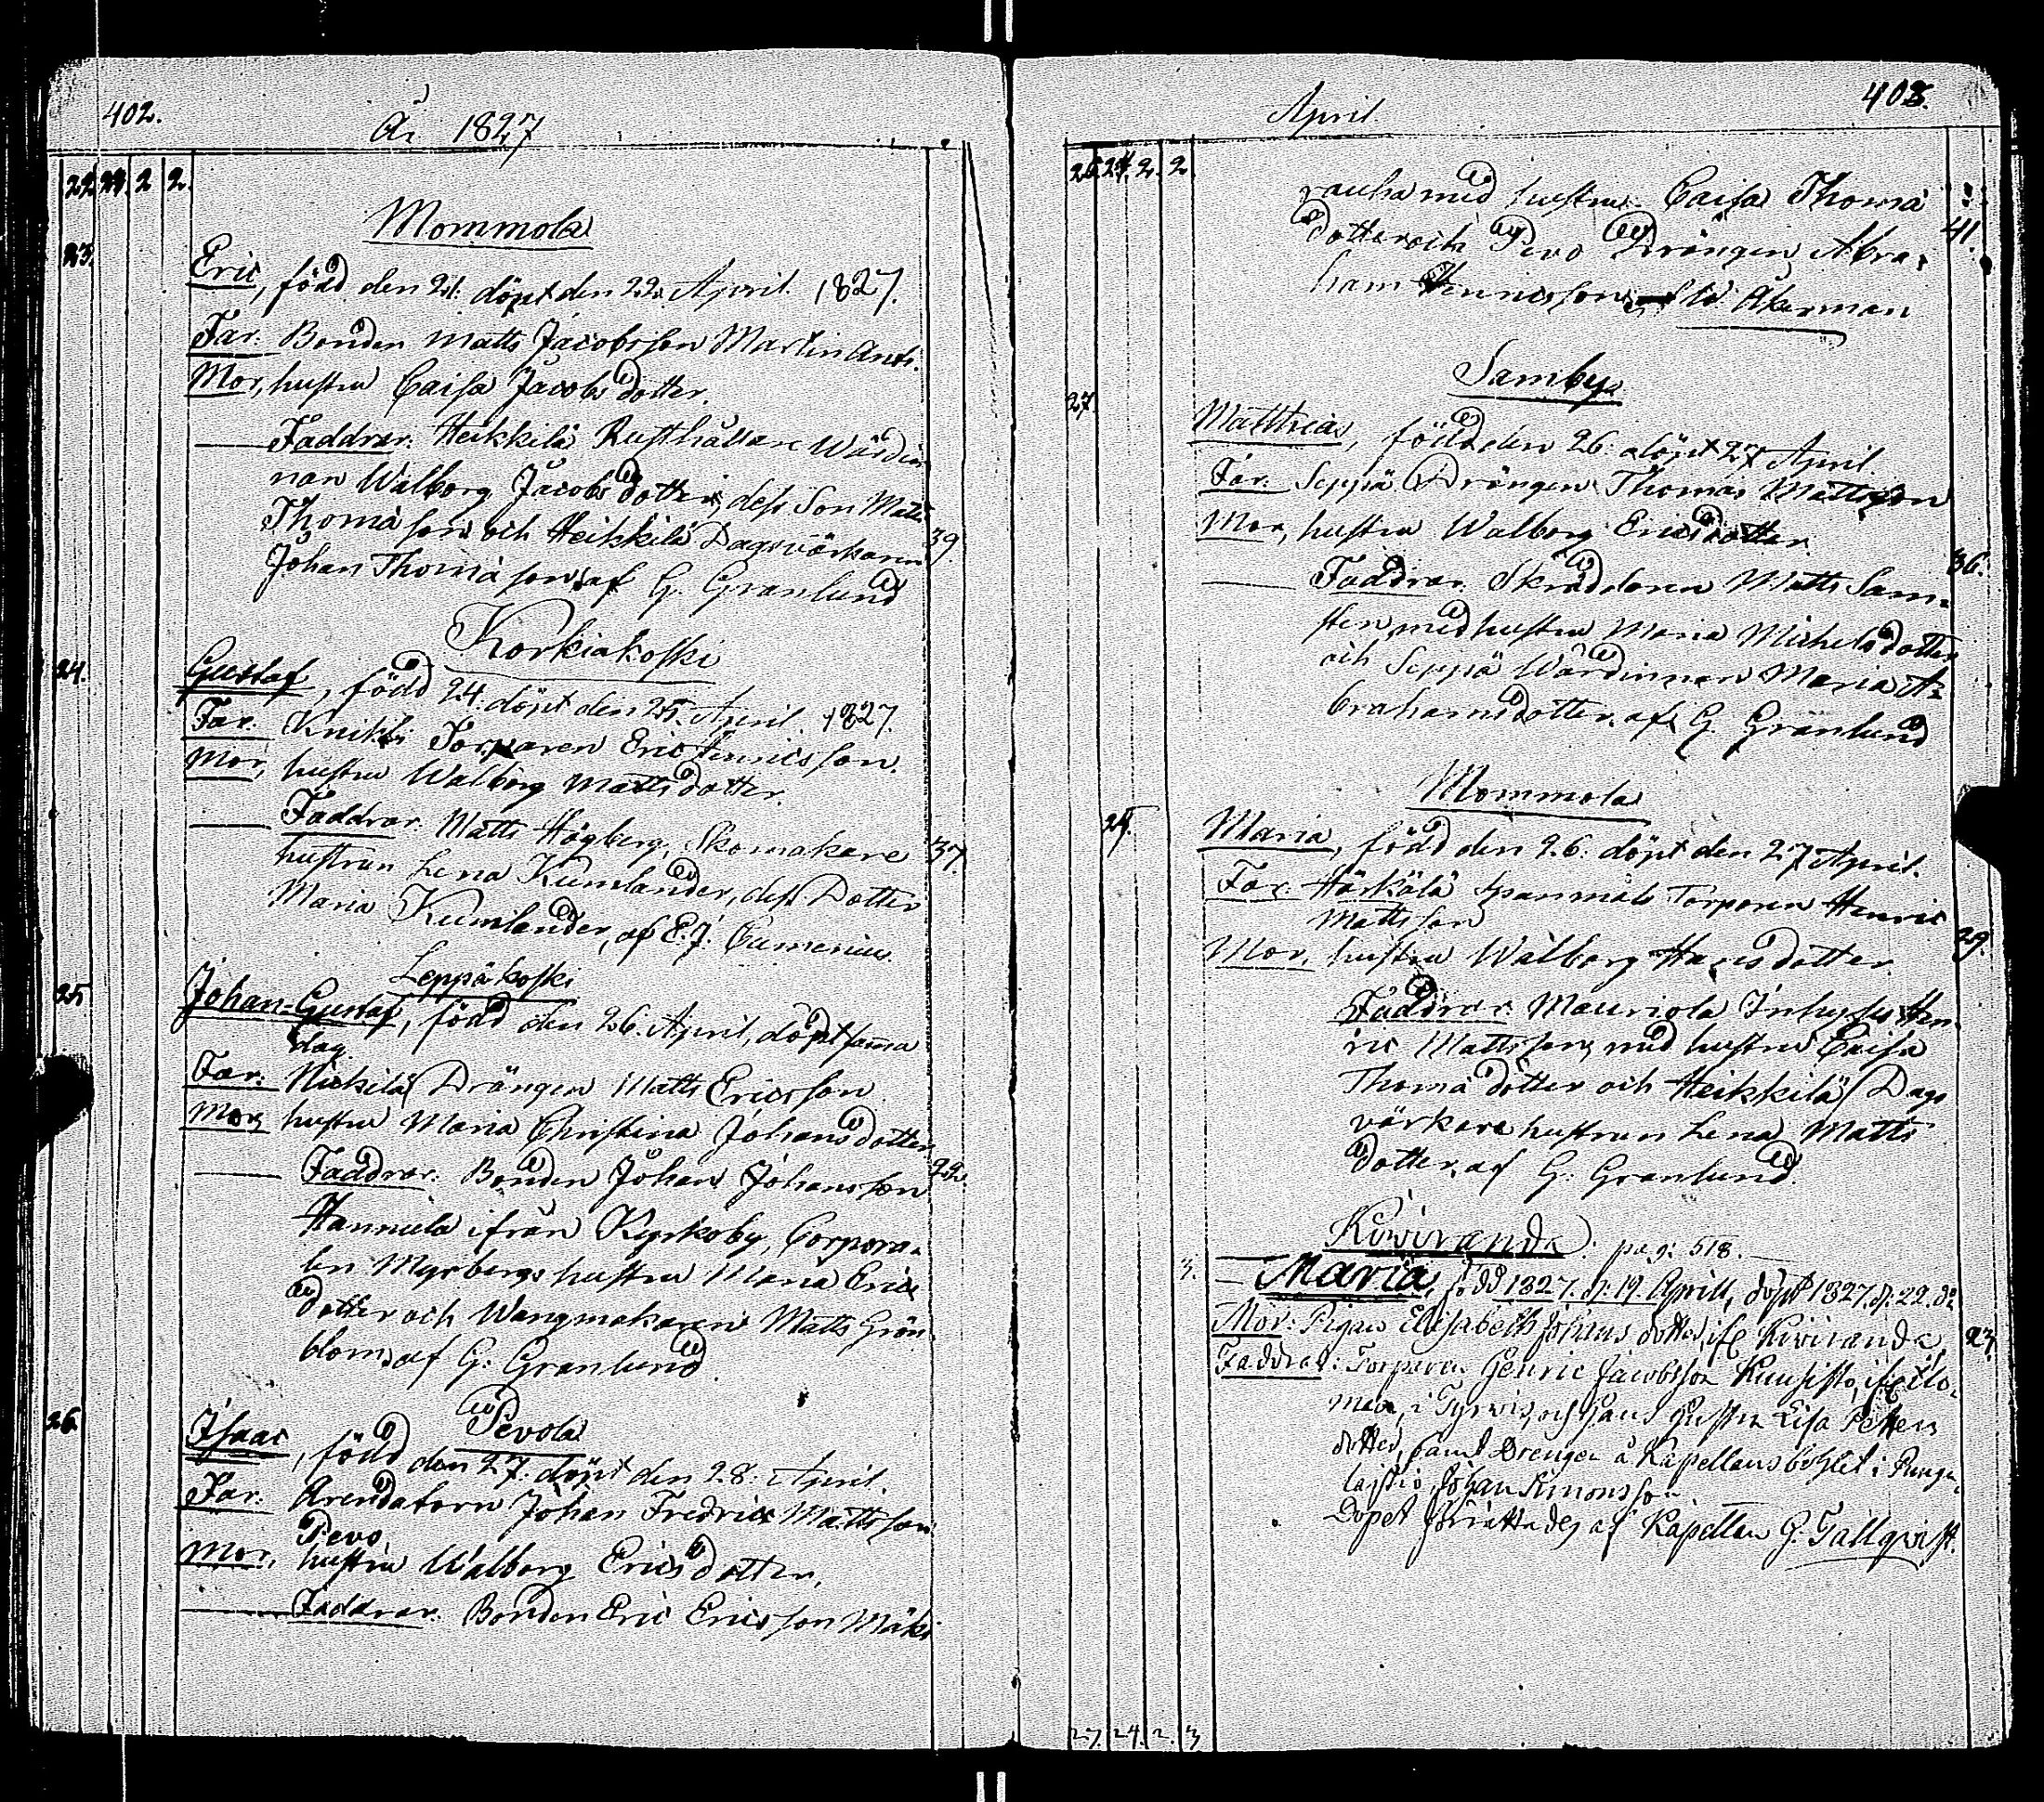 402.
År 1827
22. 2 2.
Mommola
23.
Eric, född den 21. döpt den 22. April. 1827.
Far. Bonden Matts Jacobsson Martin Antti.
Mor, hustru Caisa Jacobsdotter.
Faddrar. Heikkilä Rusthållare Wärdin
nan Walborg Jacobsdotter, dess Son Matts
Thomasson och Heikkilä Dagsvärkaren 39.
Johan Thomasson, af G. Granlund
Korkiakoski
24.
Gustaf, född 24. döpt den 25. April. 1827.
Far. Torparen Eric Henricsson.
Mor, hustru Walborg Mattsdotter.
Faddrar. Matts Högberg, Skomakare 37.
hustrun Lena Kumlander, dess Dotter
Maria Kumlander, af E. J.
Leppäkoski
25.
Johan-Gustaf, född den 26. April, döpt samma
dag
Far. Nickilä Drängen Matts Ericsson
Mor, hustru Maria Christina Johansdotter
Faddrar. Bonden Johan Johansson 22.
Hannula ifrån Kyrkoby, Corpora-
len Myrbergs hustru Maria Erics
dotter och Wangmakaren Matts Grön
blom, af G. Granlund.
Pevola
26.
Isaac, född den 27. döpt den 28. April.
Far. Arendatorn Johan Fredric Mattsson
Pevo
Mor, hustru Walborg Ericsdotter,
Faddrar. Bonden Eric Ericsson Mäki
403.
April.
26. 24. 2. 2.
rauha med hustru Caisa Thoma
dotter och Pevo Drängen Abra- 41.
ham Henricsson, W. Åkerman
Samby
27.
Matthias, född den 26. döpt 27 April.
Far. Seppä Drängen Thomas Mattsson
Mor, hustru Walborg Ericsdotter
Faddrar. Skräddaren Matts Sam- 36.
sten med hustru Maria Michelsdotter
och Seppä Wärdinnan Maria A-
brahamsdotter, af G. Granlund
Mommola
Maria, född den 26. döpt den 27 April.
Far. Härkälä Torparen Henric
Mattsson
Mor, hustru Walborg Hansdotter 29.
Faddrar. Mauriola Inhyses Hen
ric Mattsson med hustru Caisa
Thomadotter och Heikkilä Dags
värkare hustrun Lena Matts
dotter, af G. Granlund.
Kiviranda: pag: 518.
3.
Maria, född 1827. d: 19 Aprill, döpt 1827. d: 22. d:o
Mor: Pigan Elisabeth Johans dotter, ifr. Kiviranda, 23.
Faddrar: Torparen Henric Jacobsson Kuusisto, ifr. Ilo-
maa, i Tyrvis, och hans hustru Lisa Petters
dotter, samt Drengen å Kapellansbohlet i Punga
laistio, Johan Simonsson
Dopet förrättades af Kapellan G. Tallqvist.
27. 24. 2. 3